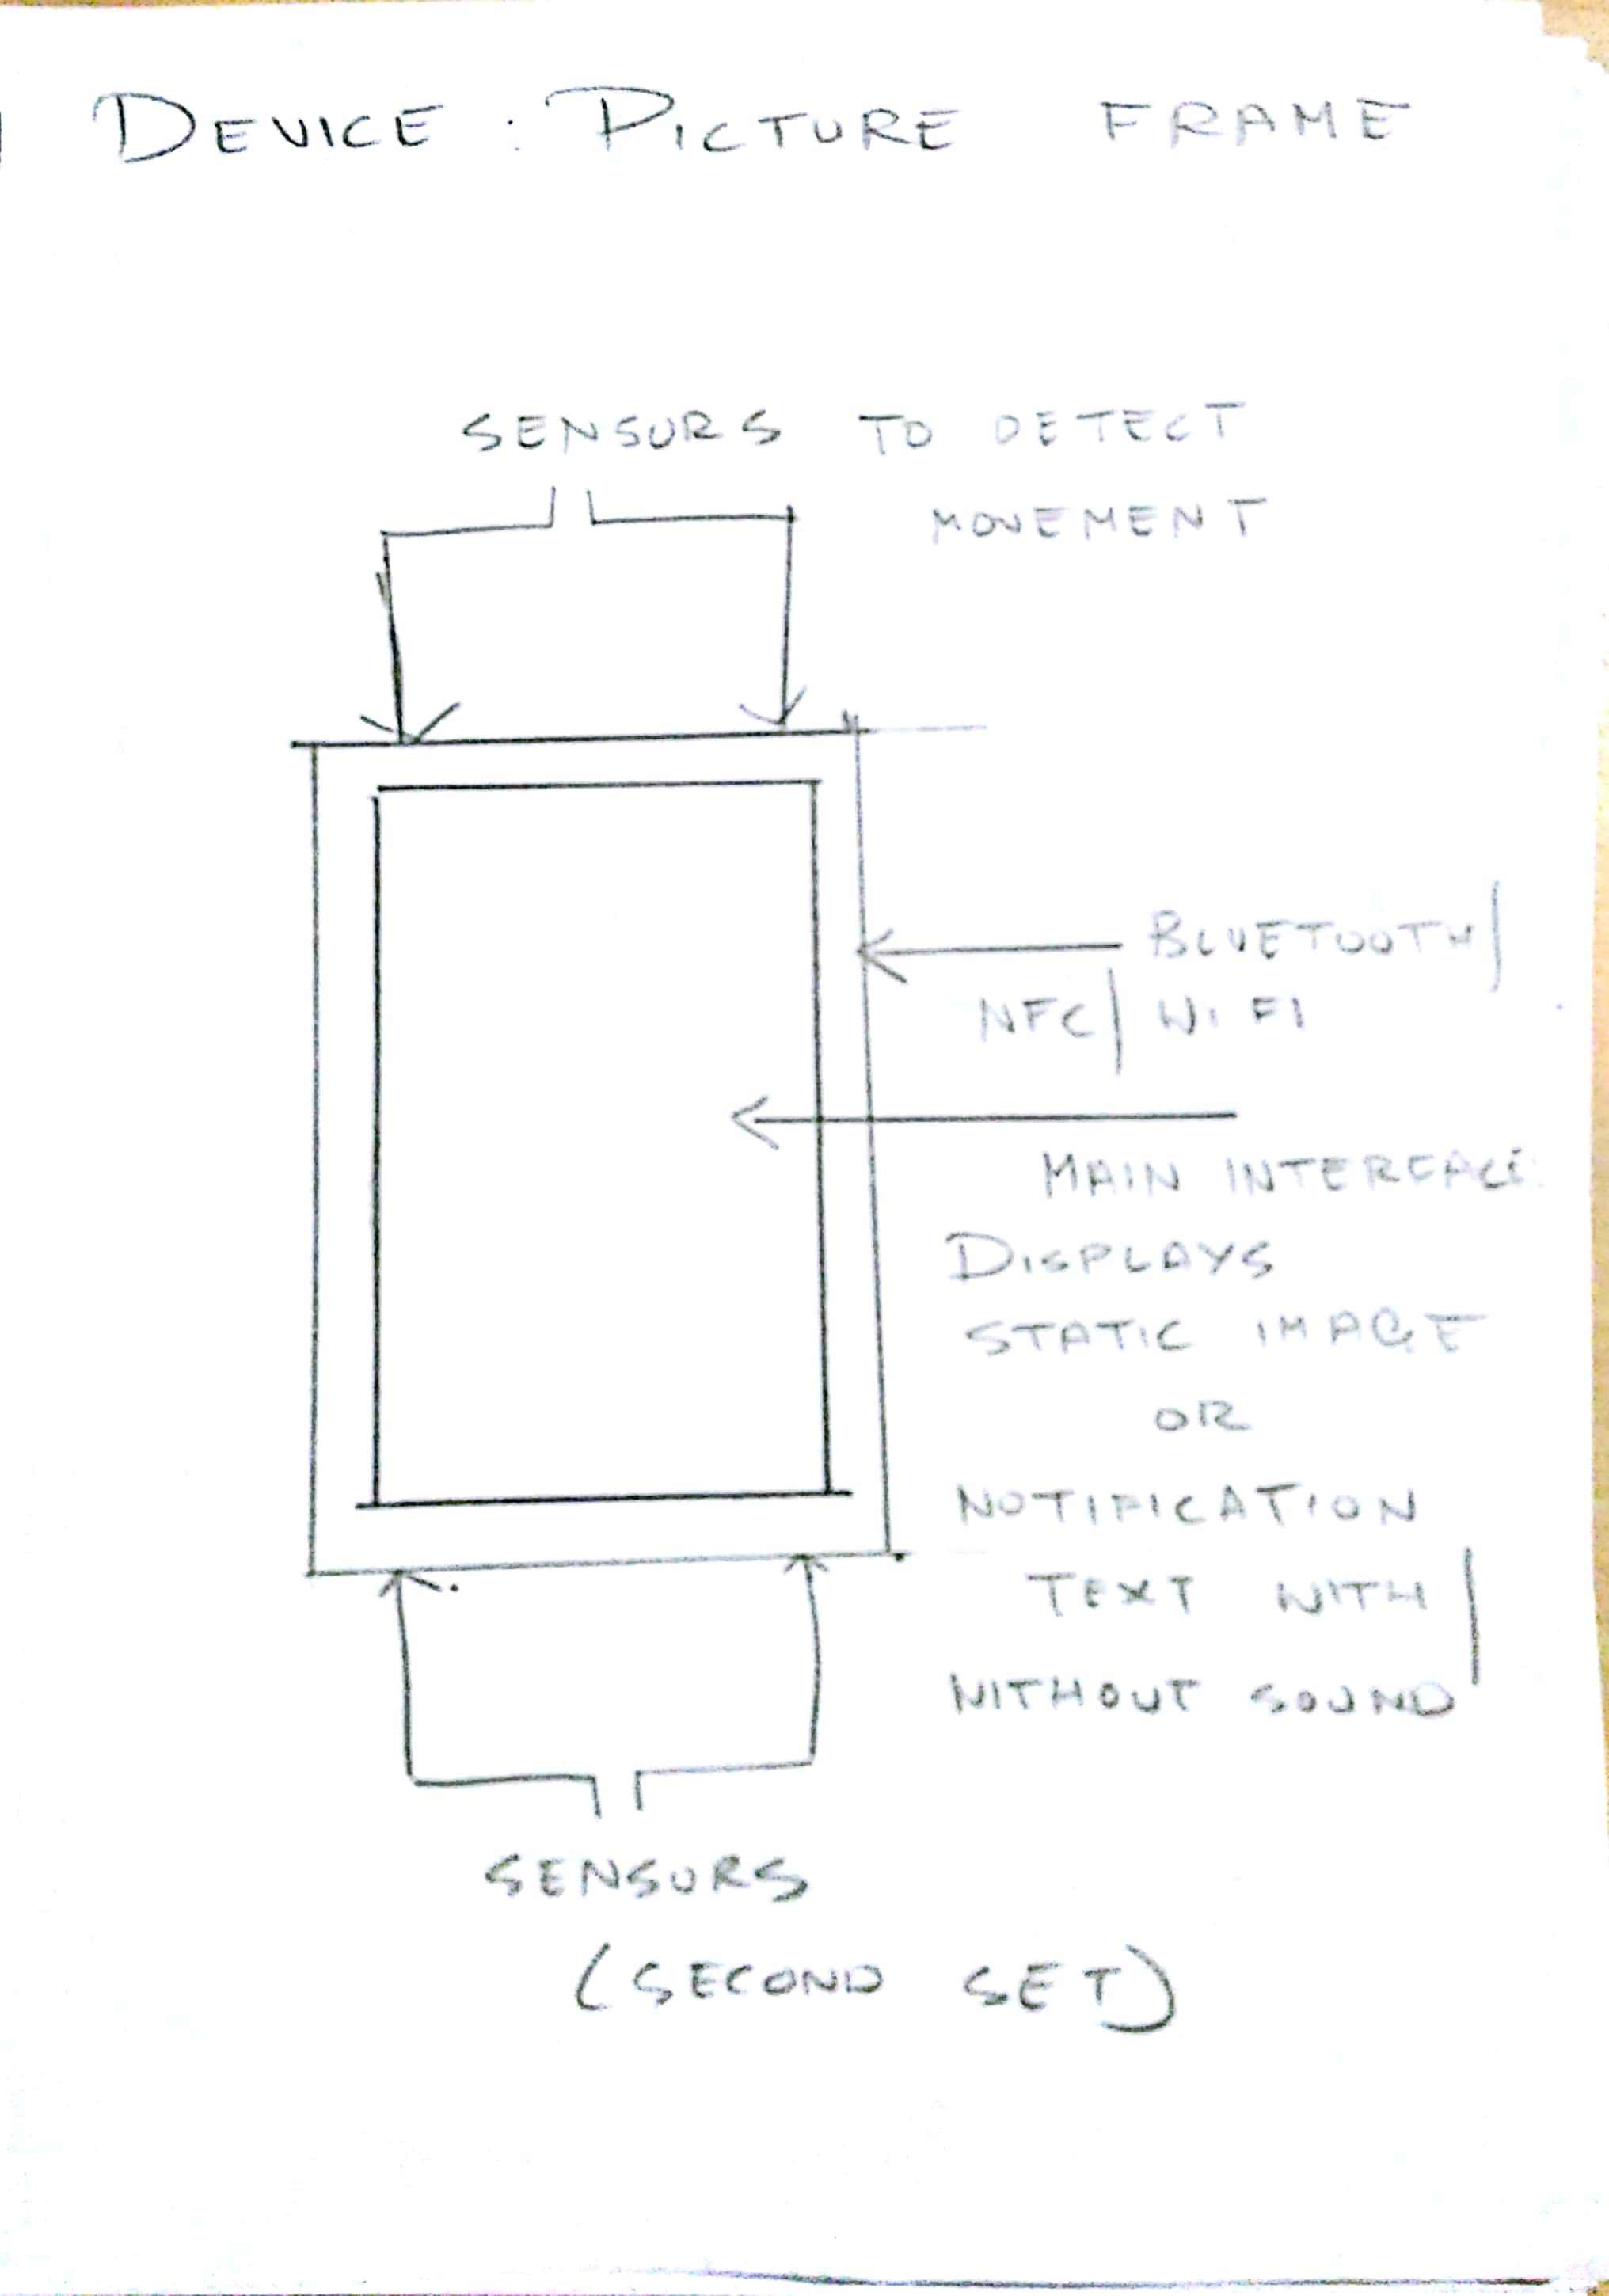 DEVICE: PICTURE FRAME
SENSORS TO DETECT
MOVEMENT
BLUETOOTH/
NFC/WIFI
MAIN INTERFACE:
DISPLAYS
STATIC IMAGE
OR
NOTIFICATION
TEXT WITH/
WITHOUT SOUND
SENSORS
(SECOND SET)